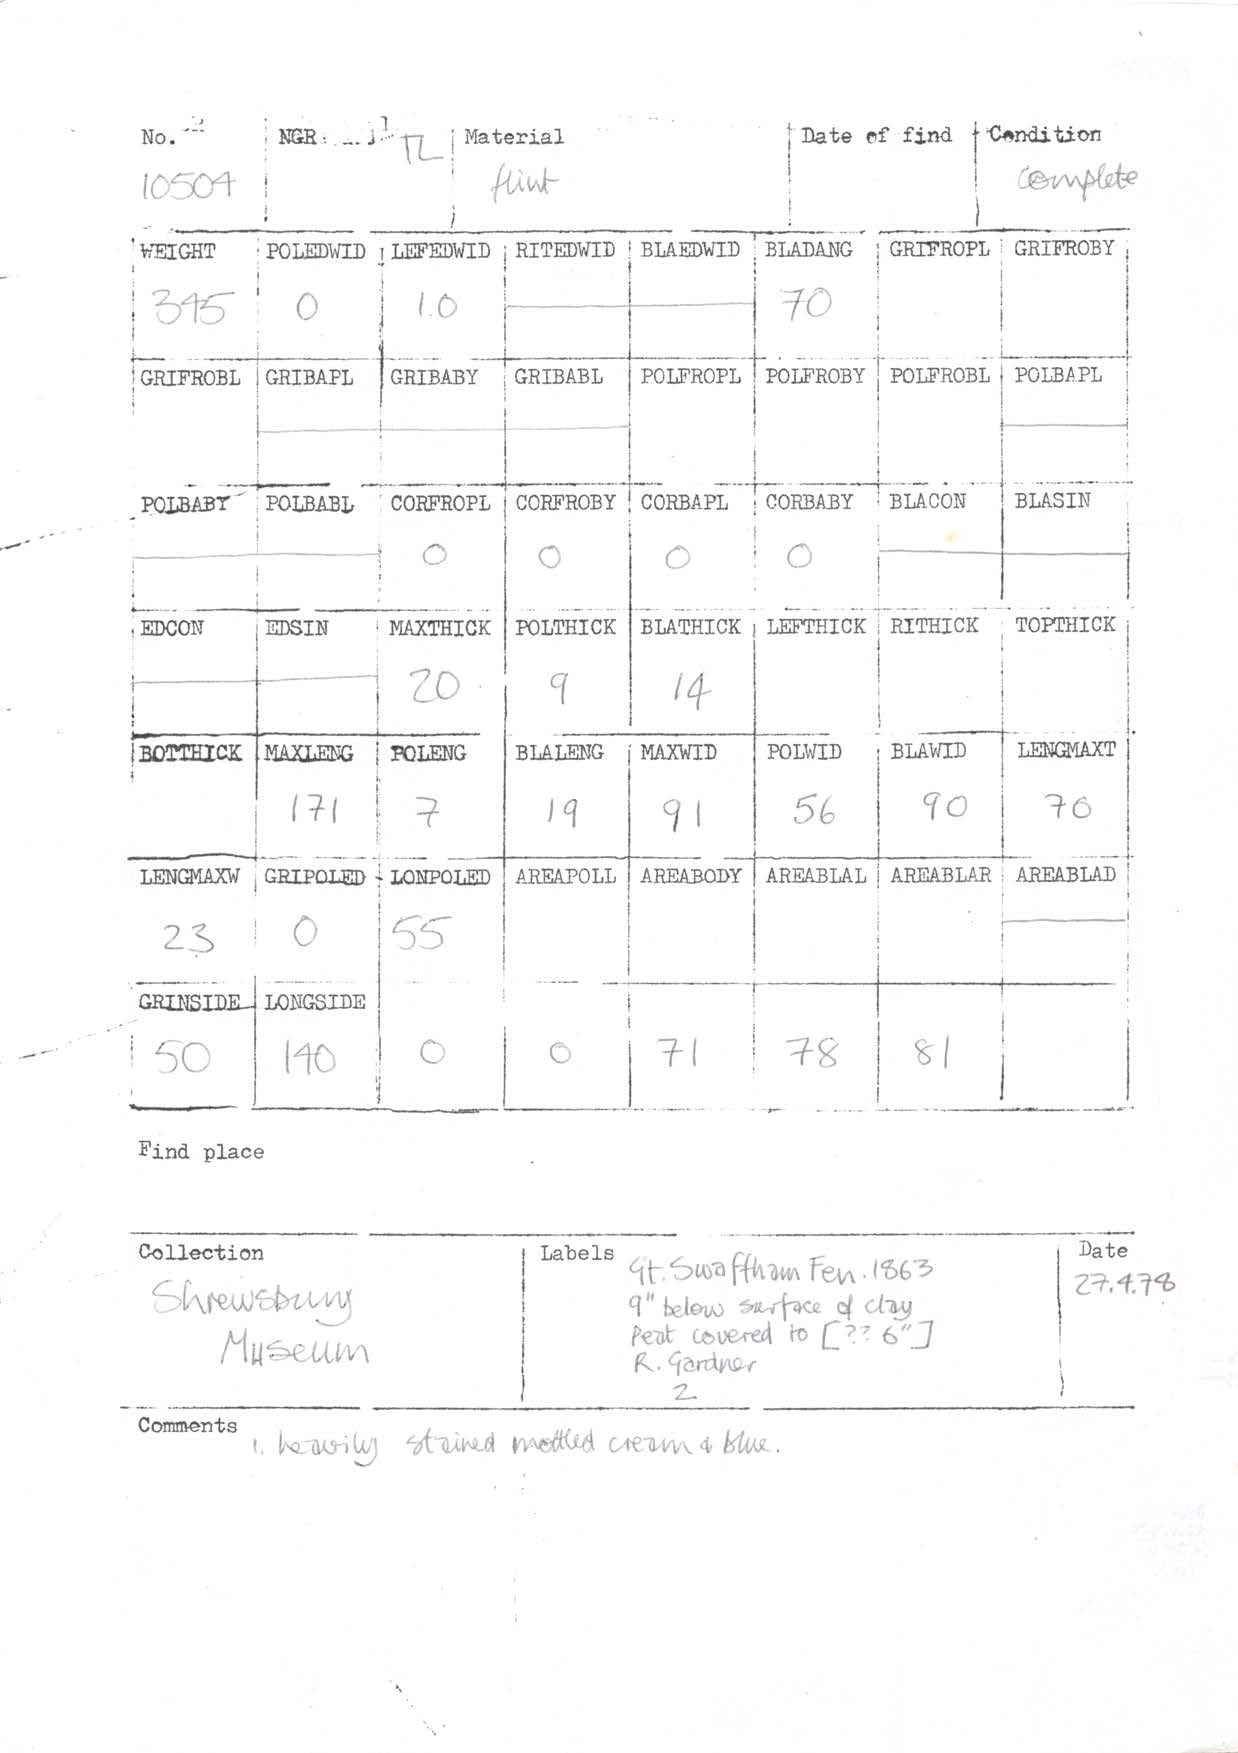 No. NGR TL Material Date of find Condition
10504 flint complete
WEIGHT POLEDWID LEFEDWID RITEDWID BLAEDWID BLADANG GRIFROPL GRIFROBY
345 0 1.0 70
GRIFROBL GRIBAPL GRIBABY GRIBABL POLFROPL POLFROBY POLFROBL POLBAPL
POLBABY POLBABL CORFROPL CORFROBY CORBAPL CORBABY BLACON BLASIN
0 0 0 0
EDCON EDSIN MAXTHICK POLTHICK BLATHICK LEFTHICK RITHICK TOPTHICK
20 9 14
BOTTHICK MAXLENG POLENG BLALENG MAXWID POLWID BLAWID LENGMAXT
171 7 19 91 56 90 70
LENGMAXW GRIPOLED LONPOLED AREAPOLL AREABODY AREABLAL AREABLAR AREABLAD
23 0 55
GRINSIDE LONGSIDE
50 140 0 0 71 78 81
Find place
Collection Labels Date
Shrewsbury
Museum
Gt. Swaffham Fen. 1863
9" below surface of clay
Peat covered to [?? 6"]
R. Gardner
2
27.4.78
Comments
1. heavily stained mottled cream & blue.